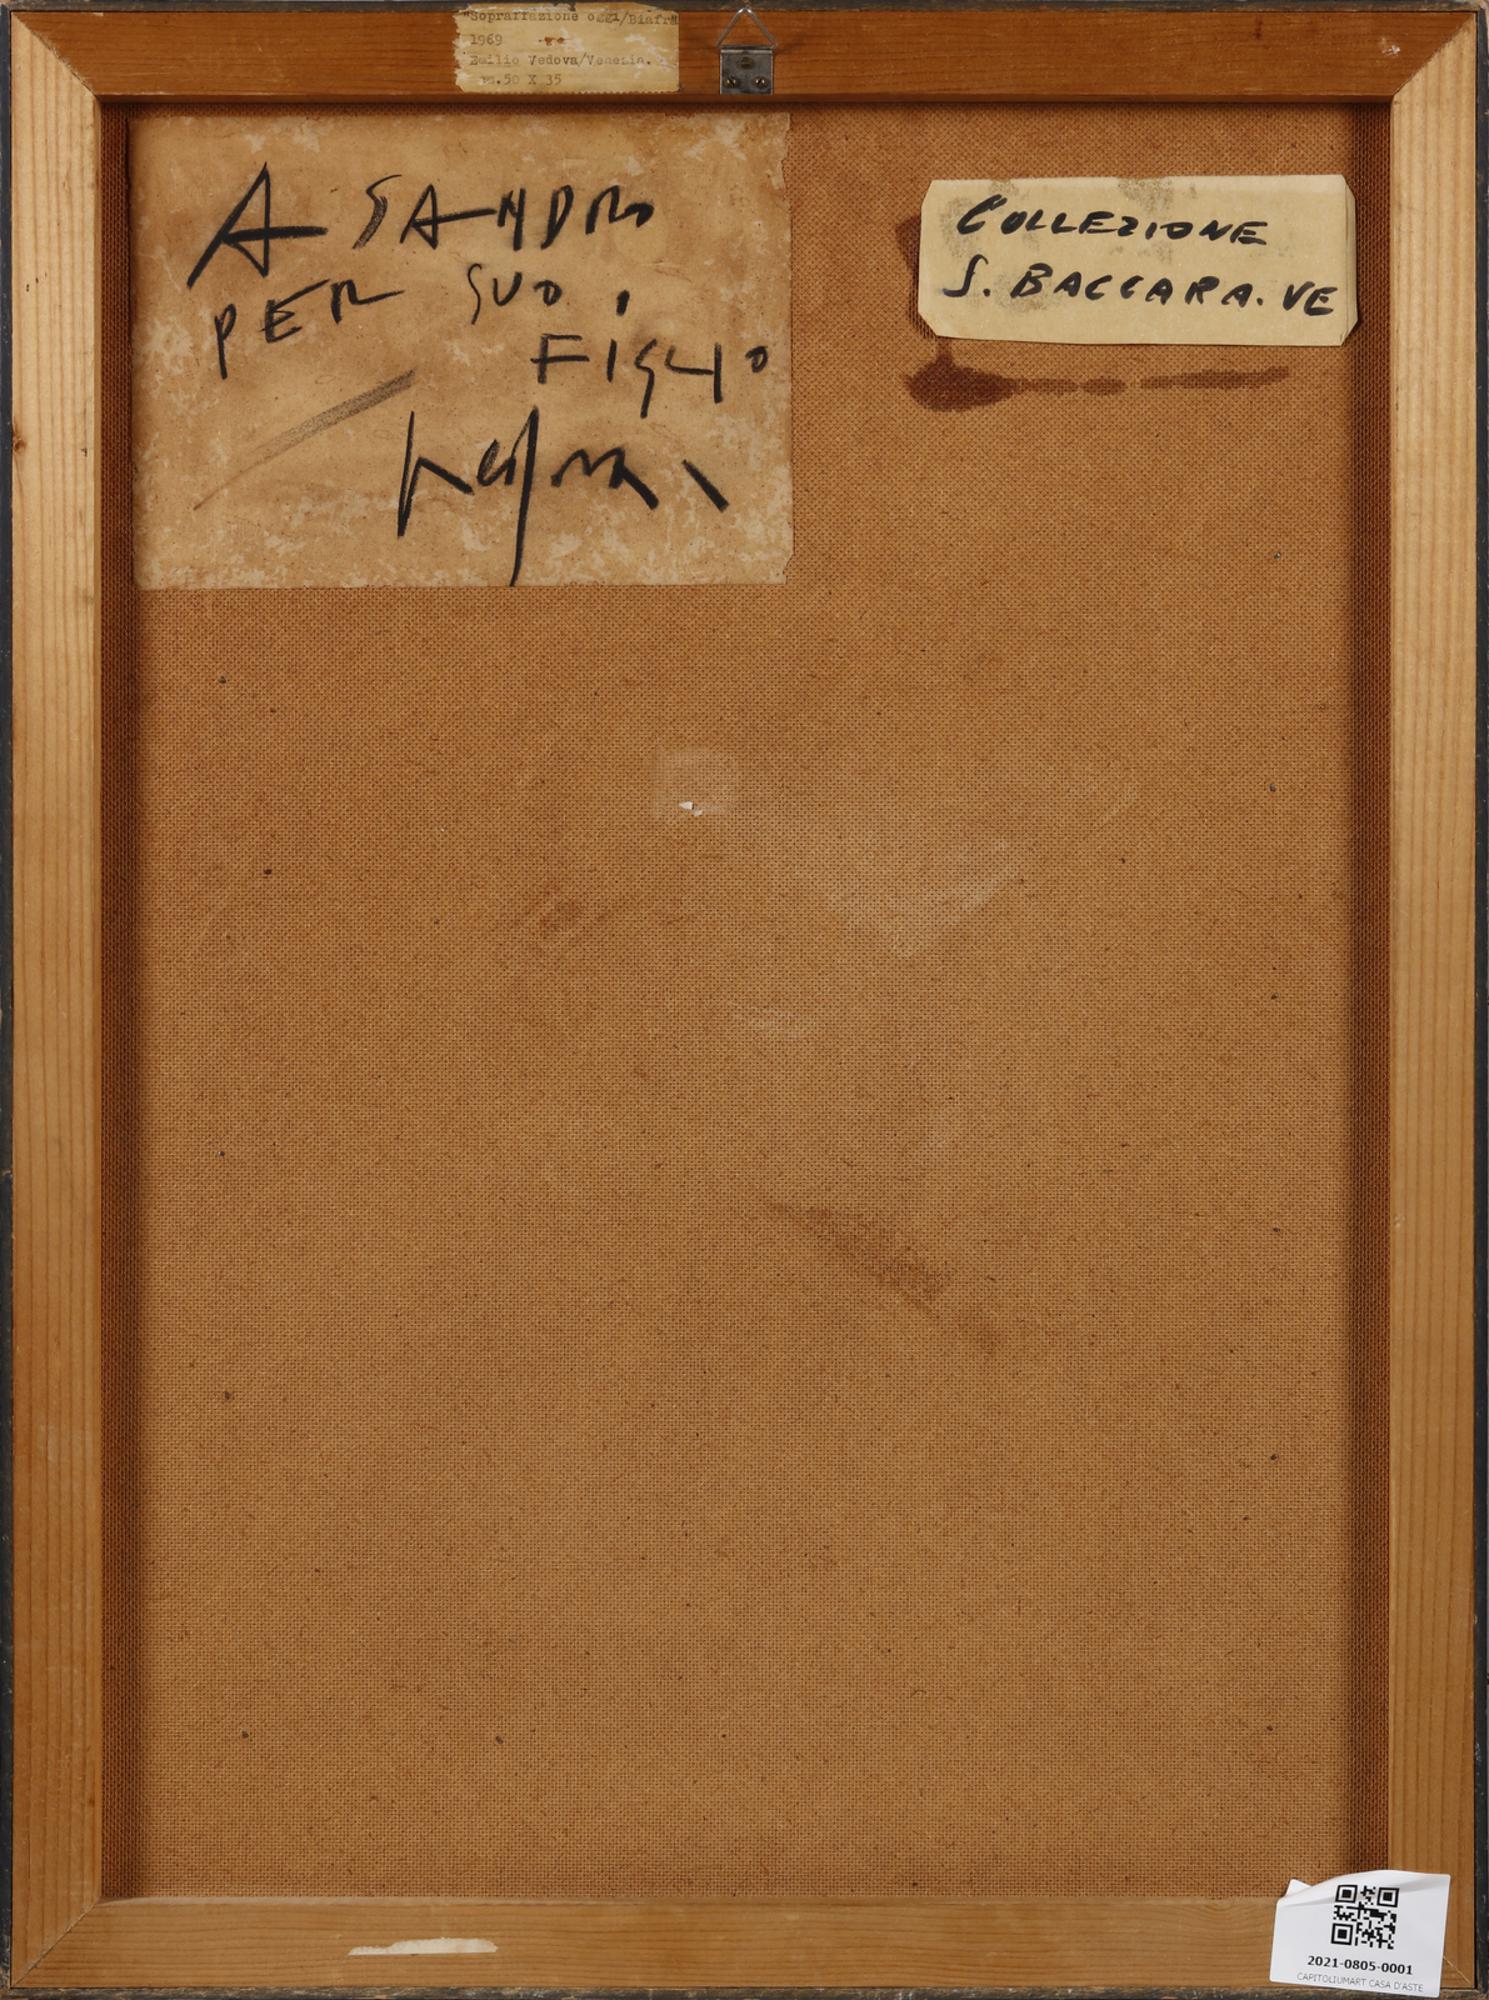 "Sopraffazione oggi/Biafra
1969
Emilio Vedova/Venezia.
50 X 35
A SANDRO
PER SUO
FIGLIO
Vedova
COLLEZIONE
S. BACCARA. VE
2021-0805-0001
CAPITOLIUMART CASA D'ASTE